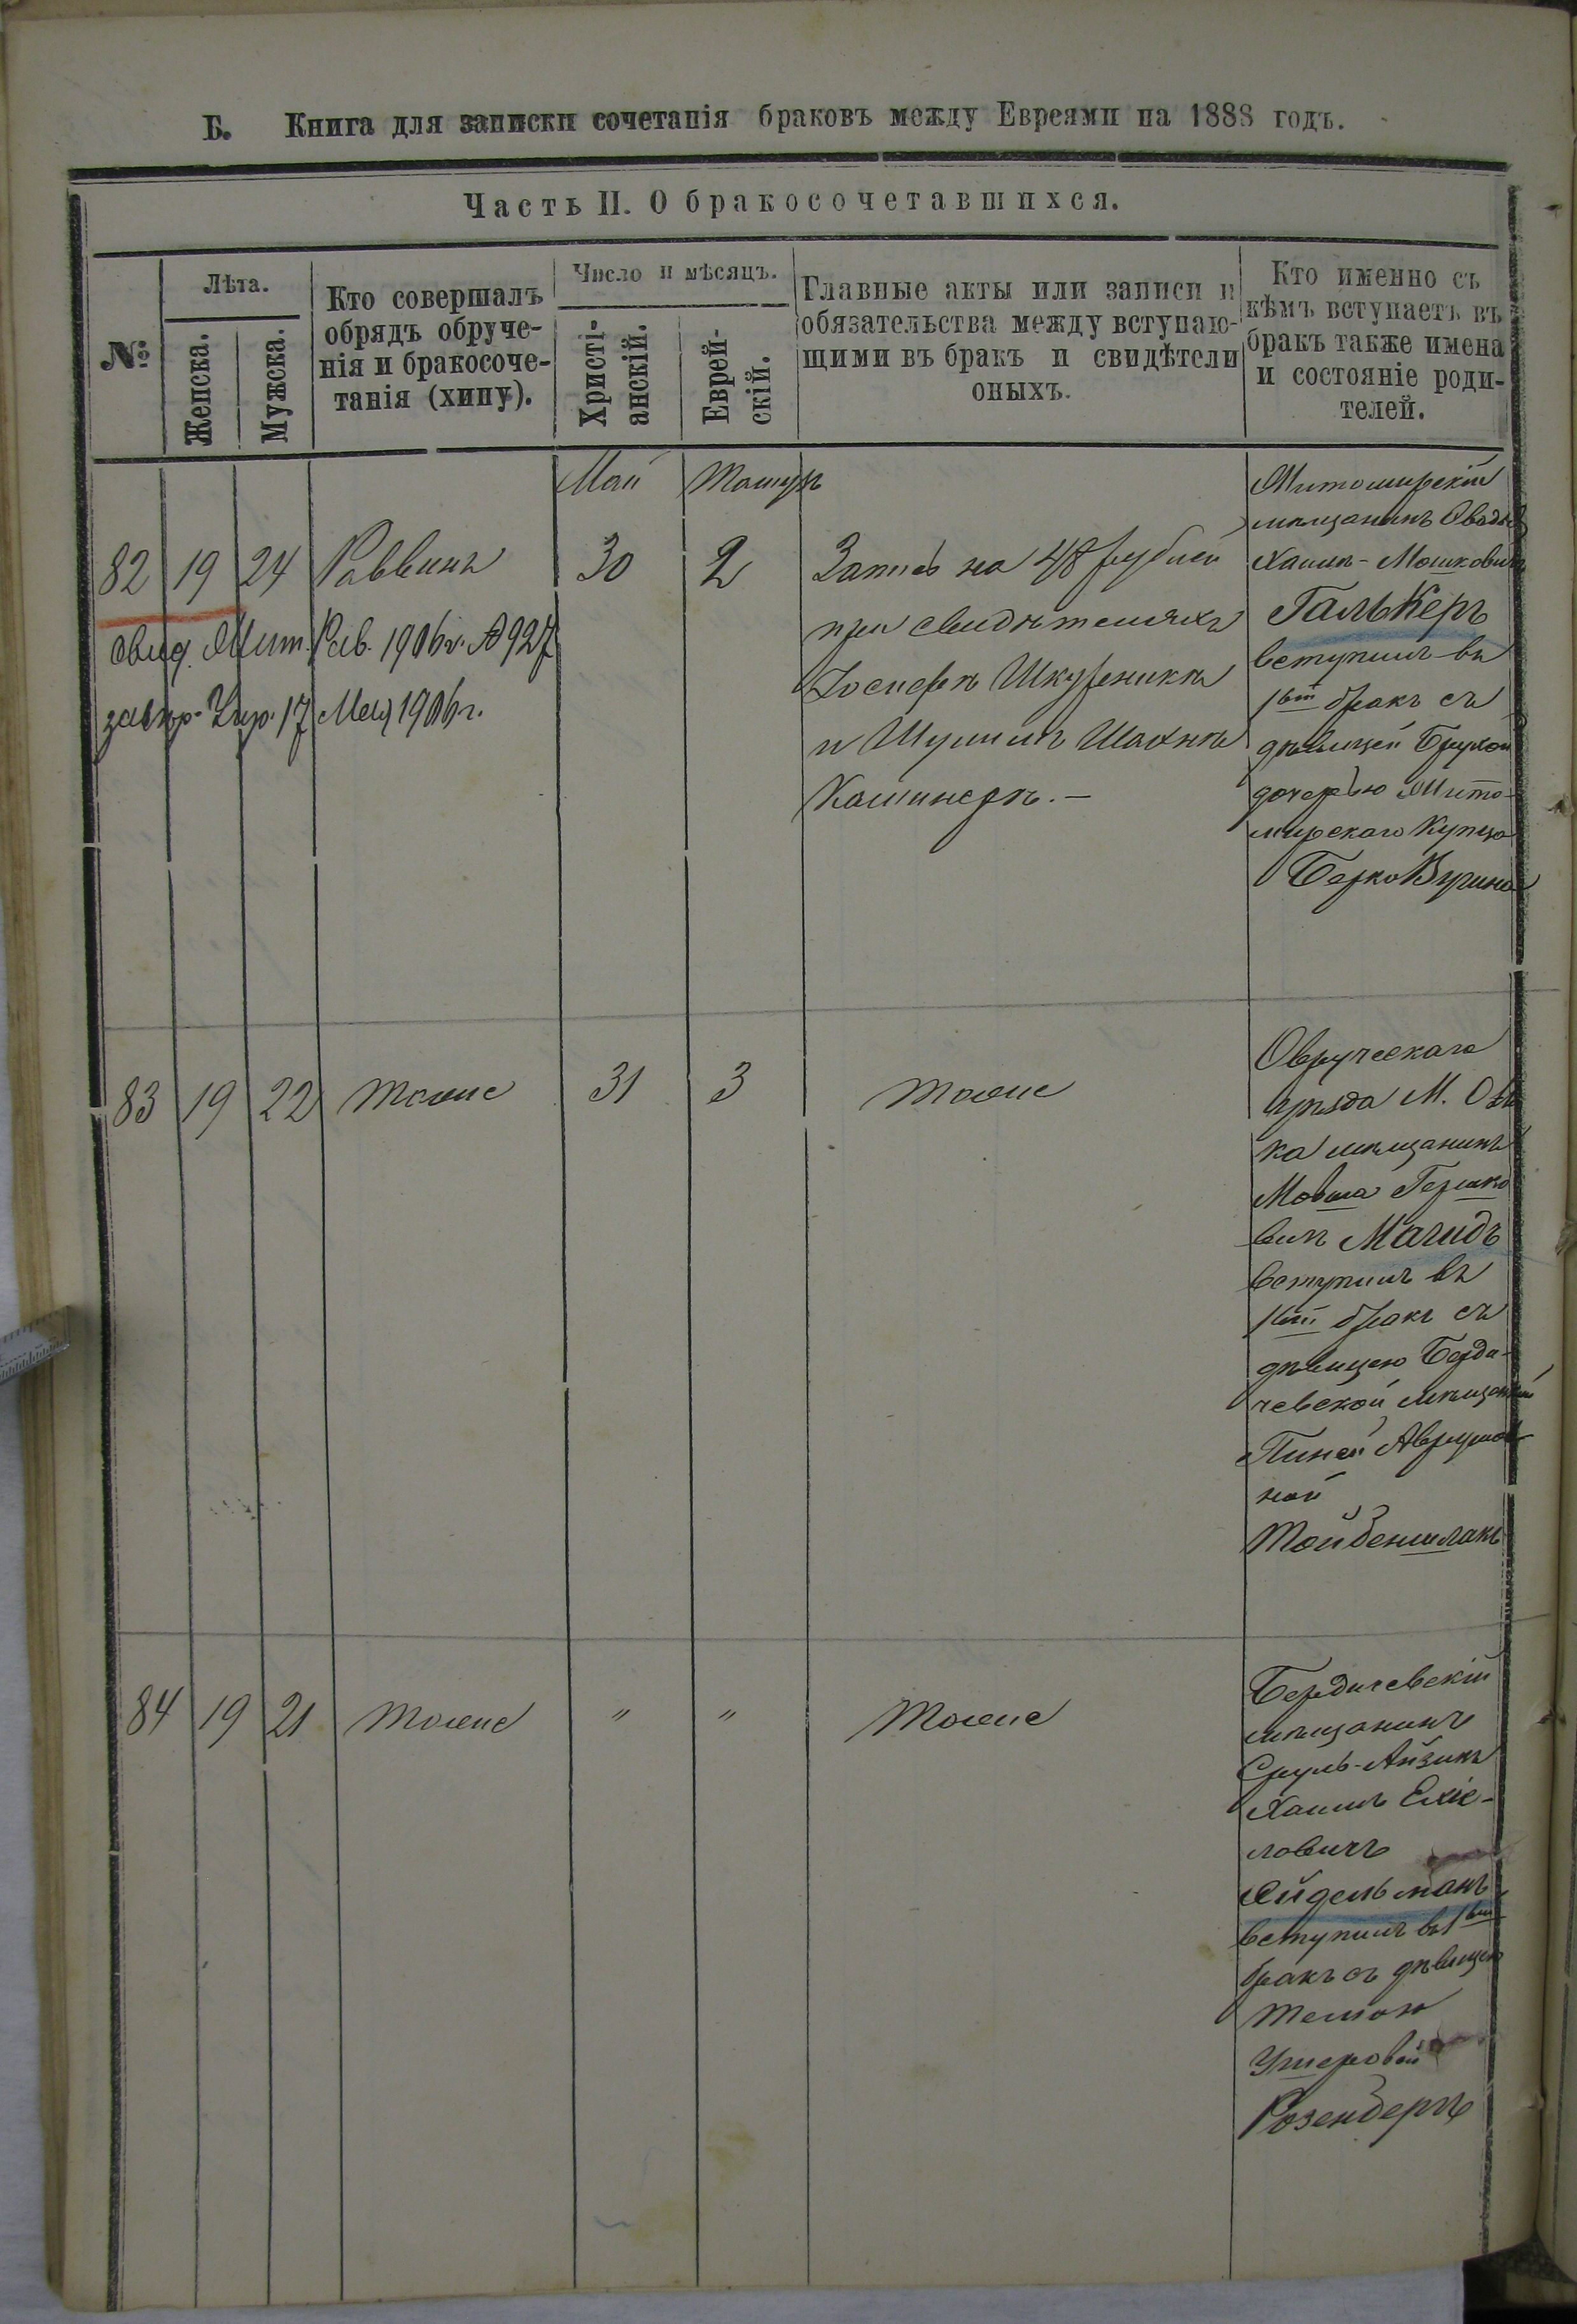 Б. Книга для записки сочетанія браковъ между Евреями на 1888 годъ.
Часть II. О бракосочетавшихся.
№
Лѣта.
Женска.
Мужска.
Кто совершалъ
обрядъ обруче-
нія и бракосоче-
танія (хипу).
Число и мѣсяцъ.
Христі-
анскій.
Еврей-
скій.
Главные акты или записи и
обязательства между вступаю-
щими въ бракъ и свидѣтели
оныхъ.
Кто именно съ
кѣмъ вступаетъ въ
бракъ также имена
и состояніе роди-
телей.
Май
82 19 24 Раввинъ 30 2
свид. Жит. Рав. 1906 г. № 927
17 Мая 1906 г.
Запись на 48 рублей
при свидѣтеляхъ
Іосифѣ Шкурникѣ
и Шулимъ Шахнѣ
Житомирскій
мѣщанинъ Овадь
Хаимъ-Мошковичъ
Галькеръ
вступилъ въ
1вый бракъ съ
дѣвицей Брухой
дочерью Жито-
мирскаго купца
Берко Вугина
83 19 22 тоже 31 3 тоже
Овручскаго
уѣзда М.
ка мѣщанинъ
Мовша Гершко
вичъ Магидъ
вступилъ въ
1вый бракъ съ
дѣвицею Берди-
чевской мѣщанкой
Пиней Аврумов
ной
Тойбеншлакъ
84 19 21 тоже " " тоже
Бердичевскій
мѣщанинъ
Сруль-Айзикъ
Хаимъ Ехіе-
ловичъ
Айдельманъ
вступилъ въ 1вый
бракъ съ дѣвицею
Темою
Ушеровой
Розенбергъ